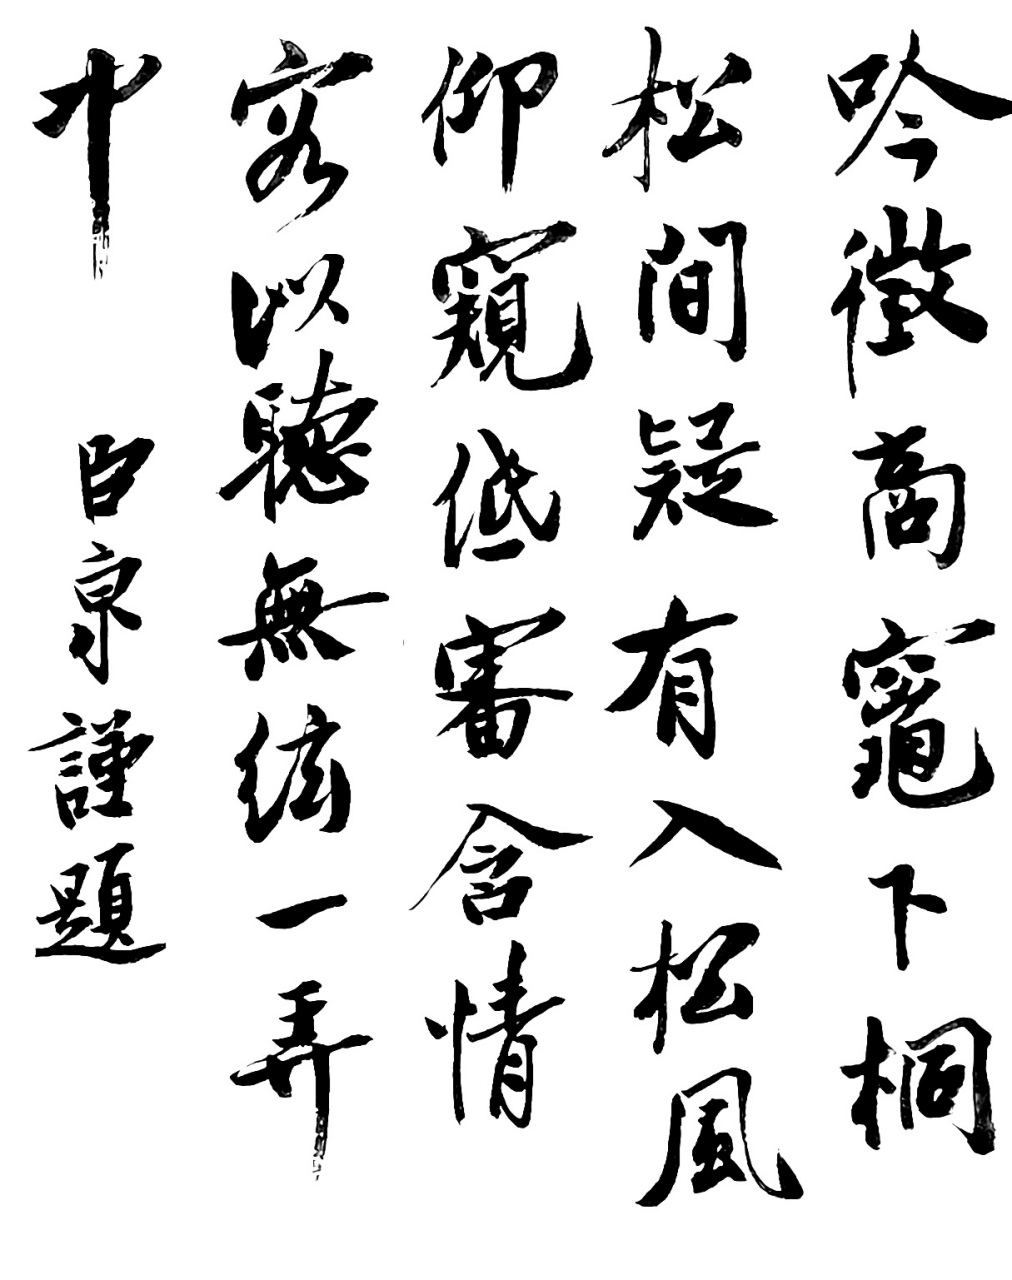 吟徵商竈下桐
松間疑有入松風
仰窺低審含情
客以聽無絃一弄
中 臣京謹題